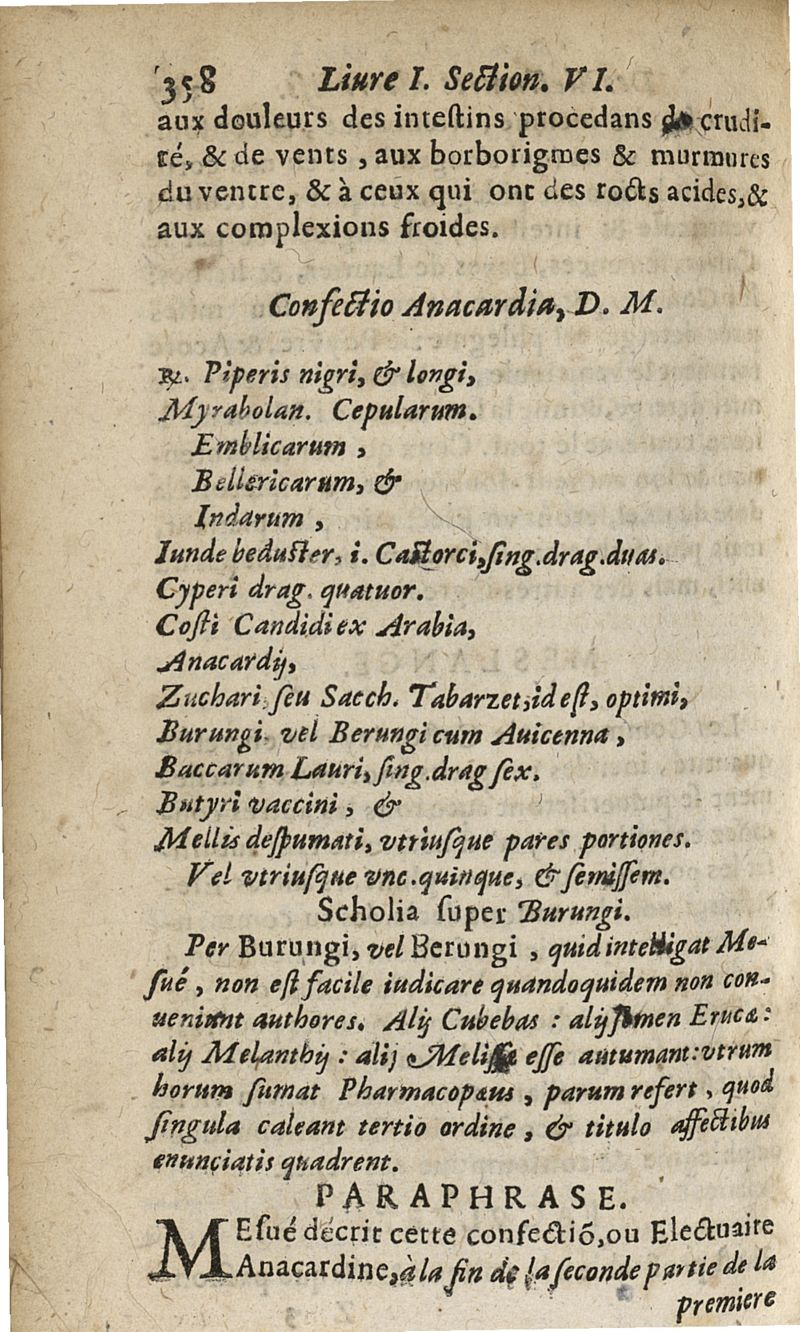 358 Liure I. Section. VI.
aux douleurs des intestins procedans de crudi-
té, & de vents, aux borborigmes & murmures
du ventre, & à ceux qui ont des rocts acides, &
aux complexions froides.
Confectio Anacardia, D. M.
℞. Piperis nigri, & longi,
Myrabolan. Cepularum.
Emblicarum,
Bellericarum, &
Indarum,
Iunde beduster, i. Castorei, sing. drag. duas.
Cyperi drag. quatuor.
Costi Candidi ex Arabia,
Anacardij,
Zuchari, seu Sacch. Tabarzet, id est, optimi,
Burungi vel Berungi cum Auicenna,
Baccarum Lauri, sing. drag sex.
Butyri vaccini, &
Mellis despumati, vtriusque pares portiones.
Vel vtriusque vnc. quinque, & semissem.
Scholia super Burungi.
Per Burungi, vel Berungi, quid intelligat Me-
sué, non est facile iudicare quandoquidem non con-
ueniunt authores. Alij Cubebas : alij semen Erucæ :
alij Melanthij : alij Melissæ esse autumant : vtrum
horum sumat Pharmacopæus, parum refert, quod
singula caleant tertio ordine, & titulo affectibus
enunciatis quadrent.
PARAPHRASE.
MEsué décrit cette confectiõ, ou Electuaire
Anacardine, à la fin de la seconde partie de la
premiere